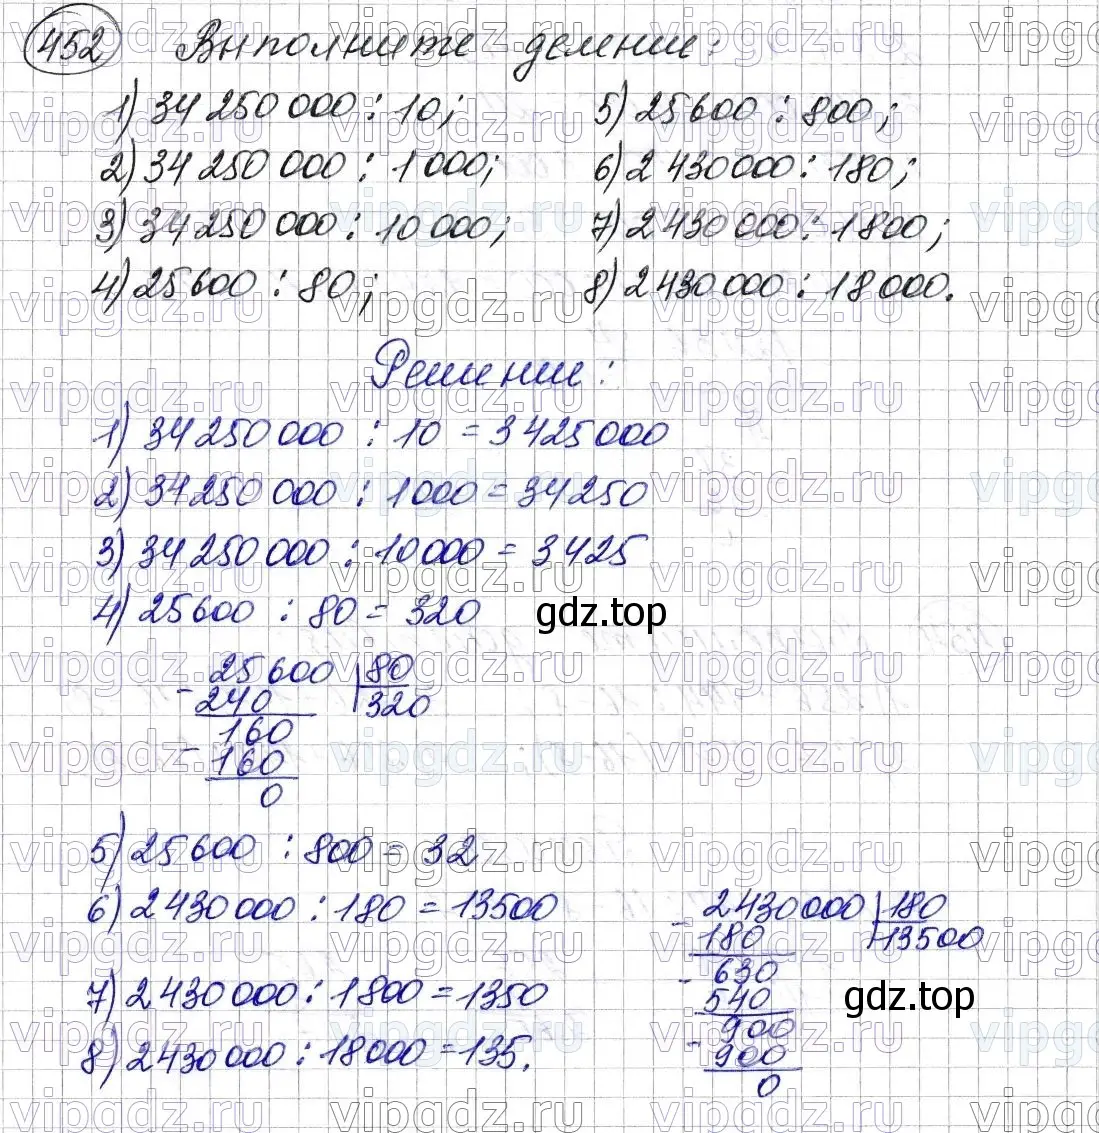 452 Выполните деление:
1) 34 250 000 : 10;
2) 34 250 000 : 1 000;
3) 34 250 000 : 10 000;
4) 25 600 : 80;
5) 25 600 : 800;
6) 2 430 000 : 180;
7) 2 430 000 : 1 800;
8) 2 430 000 : 18 000.
Решение:
1) 34 250 000 : 10 = 3 425 000
2) 34 250 000 : 1 000 = 34 250
3) 34 250 000 : 10 000 = 3 425
4) 25 600 : 80 = 320
gdz.top
25 600 | 80
- 240 | 320
160
- 160
0
5) 25 600 : 800 = 32
6) 2 430 000 : 180 = 13500
7) 2 430 000 : 1 800 = 1350
8) 2 430 000 : 18 000 = 135.
2 430 000 | 180
- 180 | 13500
630
- 540
900
- 900
0
gdz.top
vipgdz.ru